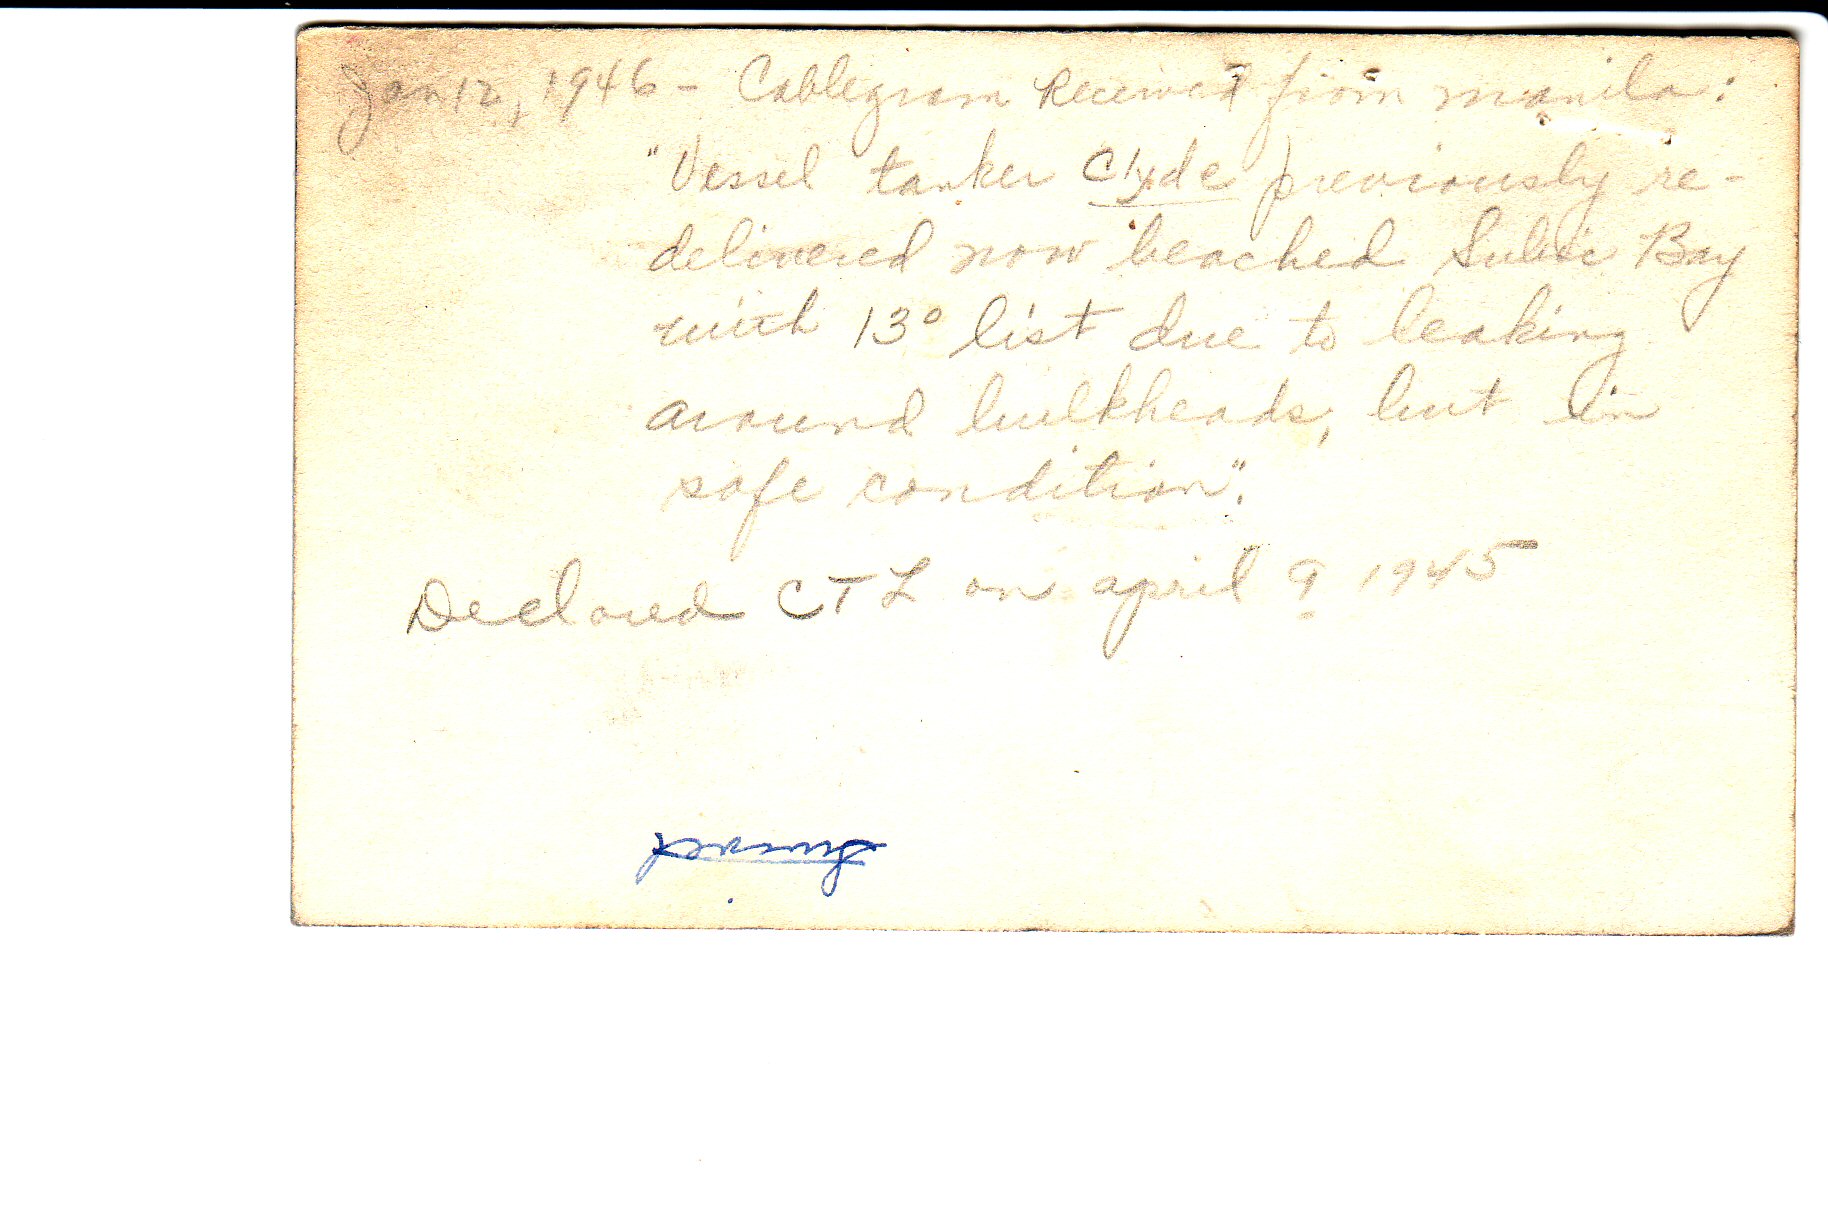 Jan 12, 1946 - Cablegram Received from Manila:
"Vessel tanker Clyde previously re-
delivered now beached Subic Bay
with 13° list due to leaking
around bulkheads, but in
safe condition".
Declared CTL on april 9 1945